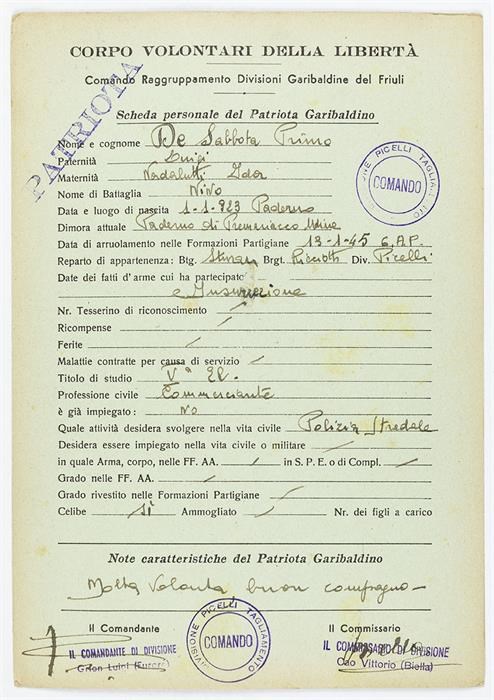 CORPO VOLONTARI DELLA LIBERTÀ
Comando Raggruppamento Divisioni Garibaldine del Friuli
PATRIOTA
Scheda personale del Patriota Garibaldino
Nome e cognome De Sabbota Primo
Paternità Luigi
Maternità Nadalutti Ida
Nome di Battaglia NINO
Data e luogo di nascita 1-1-923 Paderno
Dimora attuale Paderno di Premariacco Udine
Data di arruolamento nelle Formazioni Partigiane 13-1-45 G.A.P.
Reparto di appartenenza: Btg. Brgt. Div. Picelli
Date dei fatti d'arme cui ha partecipato
e Insurrezione
Nr. Tesserino di riconoscimento /
Ricompense /
Ferite /
Malattie contratte per causa di servizio /
Titolo di studio Vª El.
Professione civile Commerciante
è già impiegato: NO
Quale attività desidera svolgere nella vita civile Polizia Stradale
Desidera essere impiegato nella vita civile o militare /
in quale Arma, corpo, nelle FF. AA. / in S. P. E. o di Compl. /
Grado nelle FF. AA. /
Grado rivestito nelle Formazioni Partigiane /
Celibe sì Ammogliato / Nr. dei figli a carico
Note caratteristiche del Patriota Garibaldino
Molta volontà buon compagno
Il Comandante
IL COMANDANTE DI DIVISIONE
DIVISIONE PICELLI TAGLIAMENTO
COMANDO
Il Commissario
IL COMMISSARIO DI DIVISIONE
Cao Vittorio (Biella)
DIVISIONE PICELLI TAGLIAMENTO
COMANDO